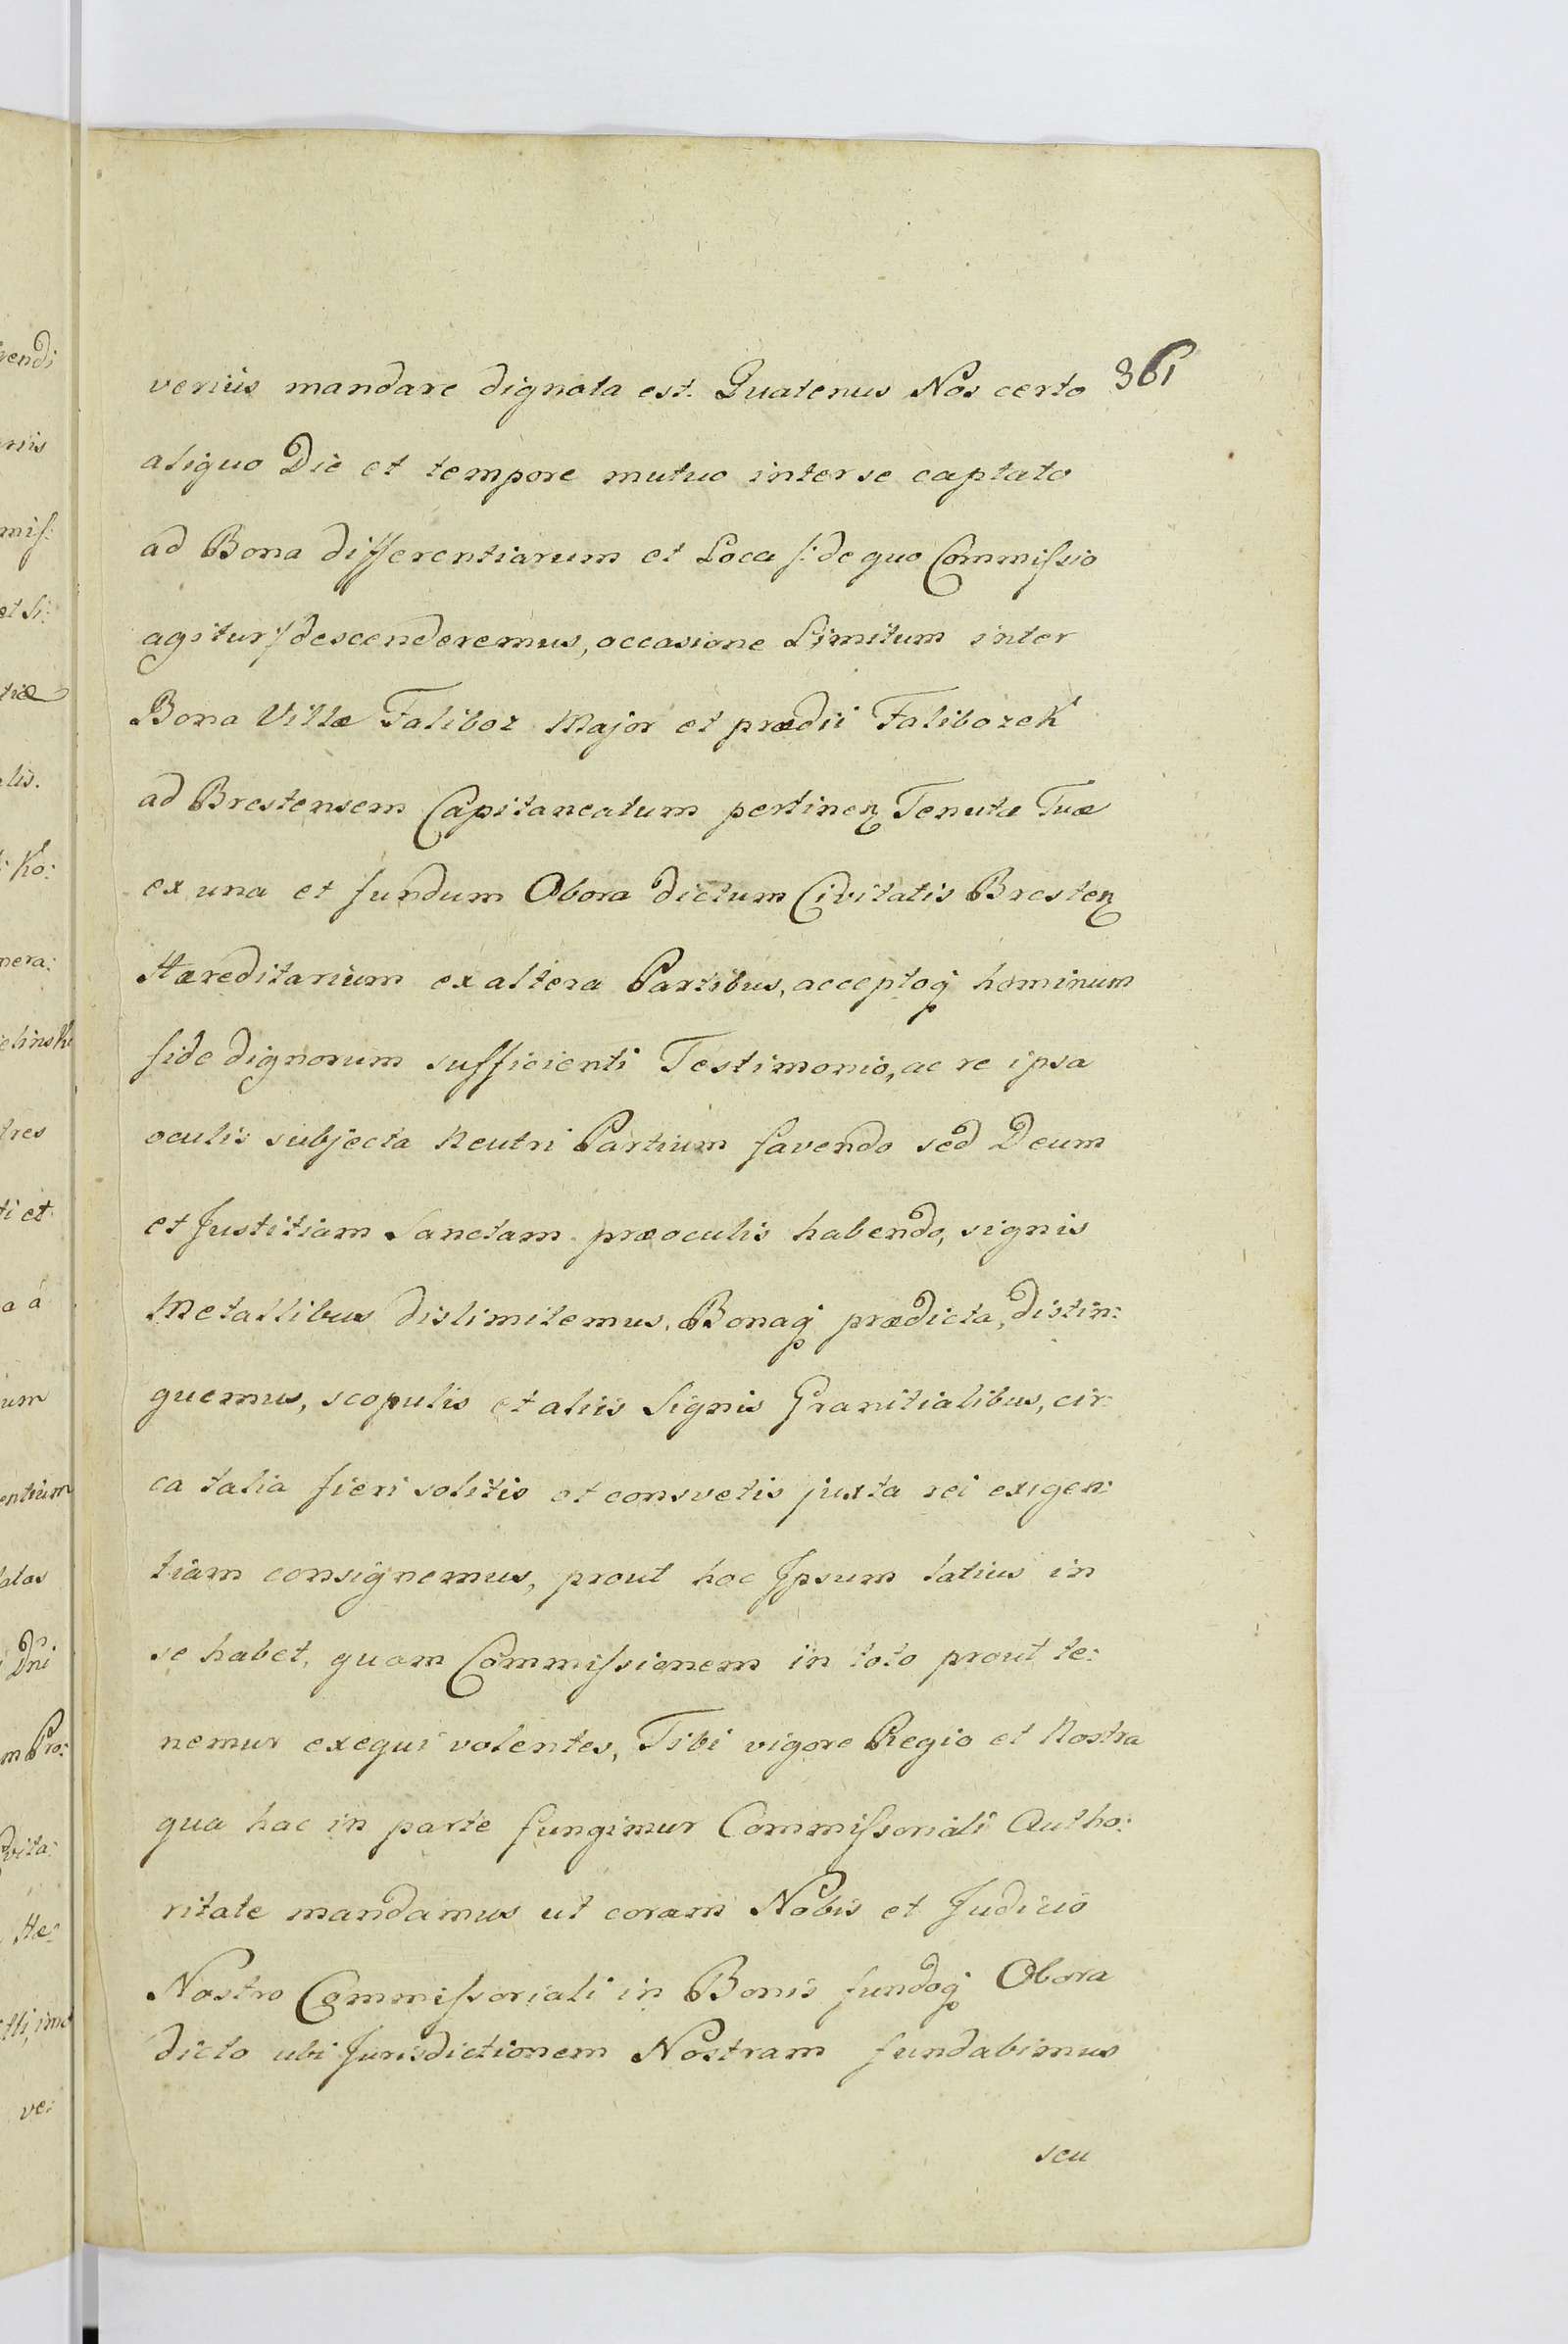 361
verius mandare dignata est. Quatenus Nos certo
aliquo Die et tempore mutuo inter se captato
ad Bona differentiarum et Loca /: de quo Commissio
agitur :/ descenderemus, occasione Limitum inter
Bona Villæ Faliboz Major et prædii Falibozek
ad Brestensem Capitaneatum pertinen Tenutæ Tuæ
ex una et fundum Obora dictum Civitatis Bresten
Hæreditarium ex altera Partibus, acceptoq hominum
fide dignorum sufficienti Testimonio, ac re ipsa
oculis subjecta Neutri Partium favendo sed Deum
et Justitiam Sanctam præ oculis habendo, signis
Metallibus dislimitemus, Bonaq prædicta, distin:
guemus, scopulis et aliis Signis Granitialibus, cir:
ca talia fieri solitis et consvetis juxta rei exigen:
tiam consignemus, prout hoc Ipsum latius in
se habet, quam Commissionem in toto prout te:
nemur exequi volentes, Tibi vigore Regio et Nostra
qua hac in parte fungimur Commissoriali Autho:
ritate mandamus ut coram Nobis et Judicio
Nostro Commissoriali in Bonis fundoq Obora
dicto ubi Jurisdictionem Nostram fundabimus
seu